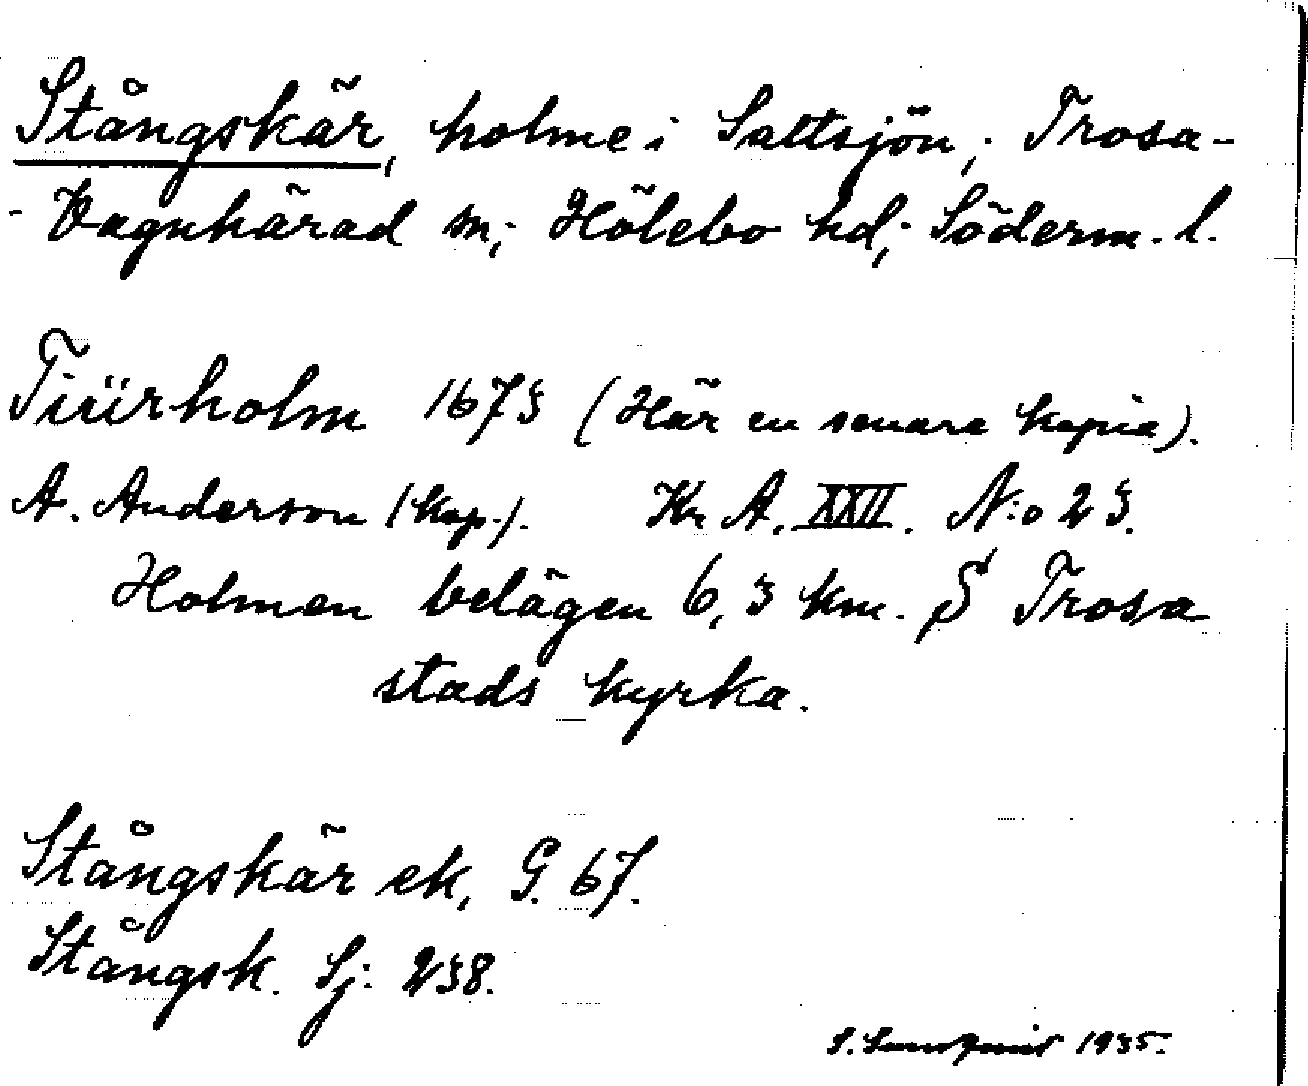 Stångskär, holme i Saltsjön; Trosa-
- Vagnhärad sn; Hölebo hd; Söderm. l.
Tiürholm 1673 (Här en senare kopia).
A. Anderson (kop.). Kr A. XXII. N:o 23.
Holmen belägen 6,3 km. S Trosa
stads kyrka.
Stångskär ek, G. 67.
Stångsk. Sj: 238.
S. 1935.